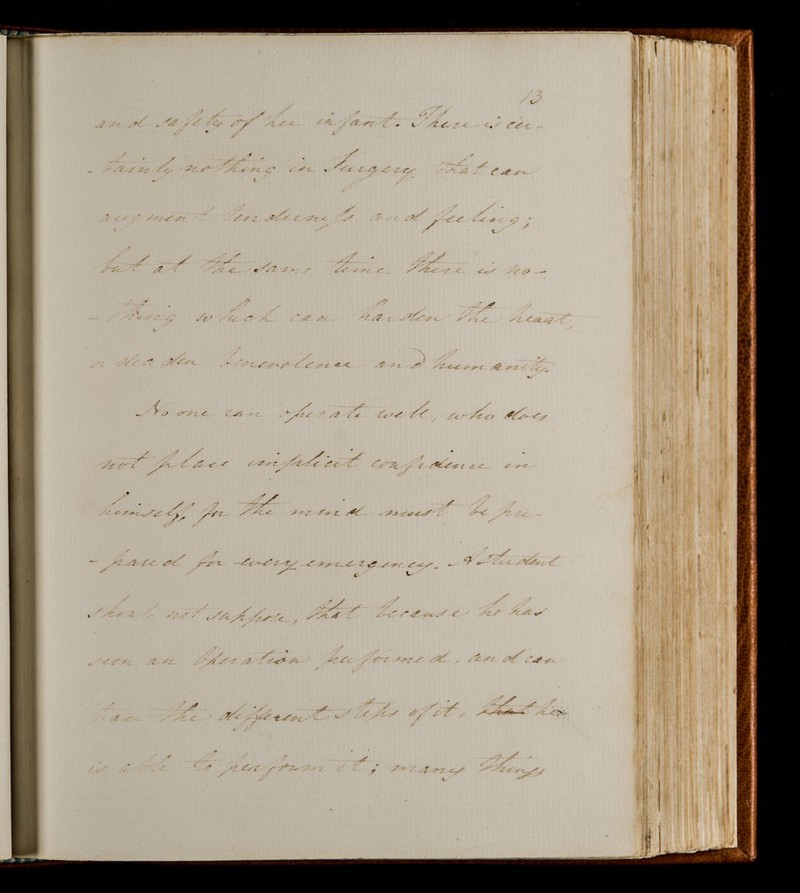 13
and safety of her infant. There is cer-
-tainly nothing in Surgery that can
augment tenderness and feeling;
but at the same time there is no-
-thing which can harden the heart,
or deaden benevolence and humanity.
No one can operate well, who does
not place implicit confidence in
himself, for the mind must be pre-
-pared for every emergency. A Student
should not suppose, that because he has
seen an Operation performed, and can
trace the different steps of it, that he
is able to perform it; many things